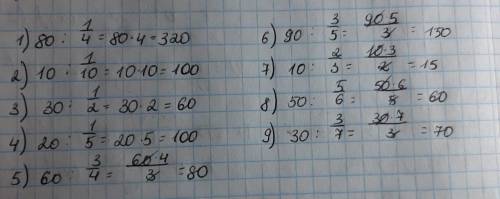 1) 80 : 1/4 = 80·4 = 320
2) 10 : 1/10 = 10·10 = 100
3) 30 : 1/2 = 30·2 = 60
4) 20 : 1/5 = 20·5 = 100
5) 60 : 3/4 = 60·4/3 = 80
6) 90 : 3/5 = 90·5/3 = 150
7) 10 : 2/3 = 10·3/2 = 15
8) 50 : 5/6 = 50·6/5 = 60
9) 30 : 3/7 = 30·7/3 = 70